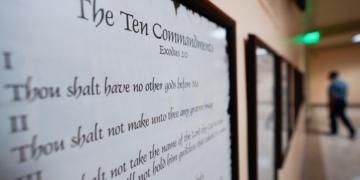 The Ten Commandments
Exodus 20
I
Thou shalt have no other gods before Me
II
Thou shalt not make unto thee any graven image
III
Thou shalt not take the name of the Lord thy God
will not hold him guiltless that taketh